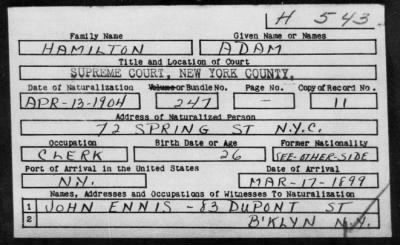 H 543
Family Name Given Name or Names
HAMILTON ADAM
Title and Location of Court
SUPREME COURT, NEW YORK COUNTY.
Date of Naturalization Volume or Bundle No. Page No. Copy of Record No.
APR-13-1904 247 - 11
Address of Naturalized Person
72 SPRING ST N.Y.C.
Occupation Birth Date or Age Former Nationality
CLERK 26 SEE-OTHER-SIDE
Port of Arrival in the United States Date of Arrival
N.Y. MAR-17-1899
Names, Addresses and Occupations of Witnesses To Naturalization
1 JOHN ENNIS - 83 DUPONT ST
2 B'KLYN N.Y.